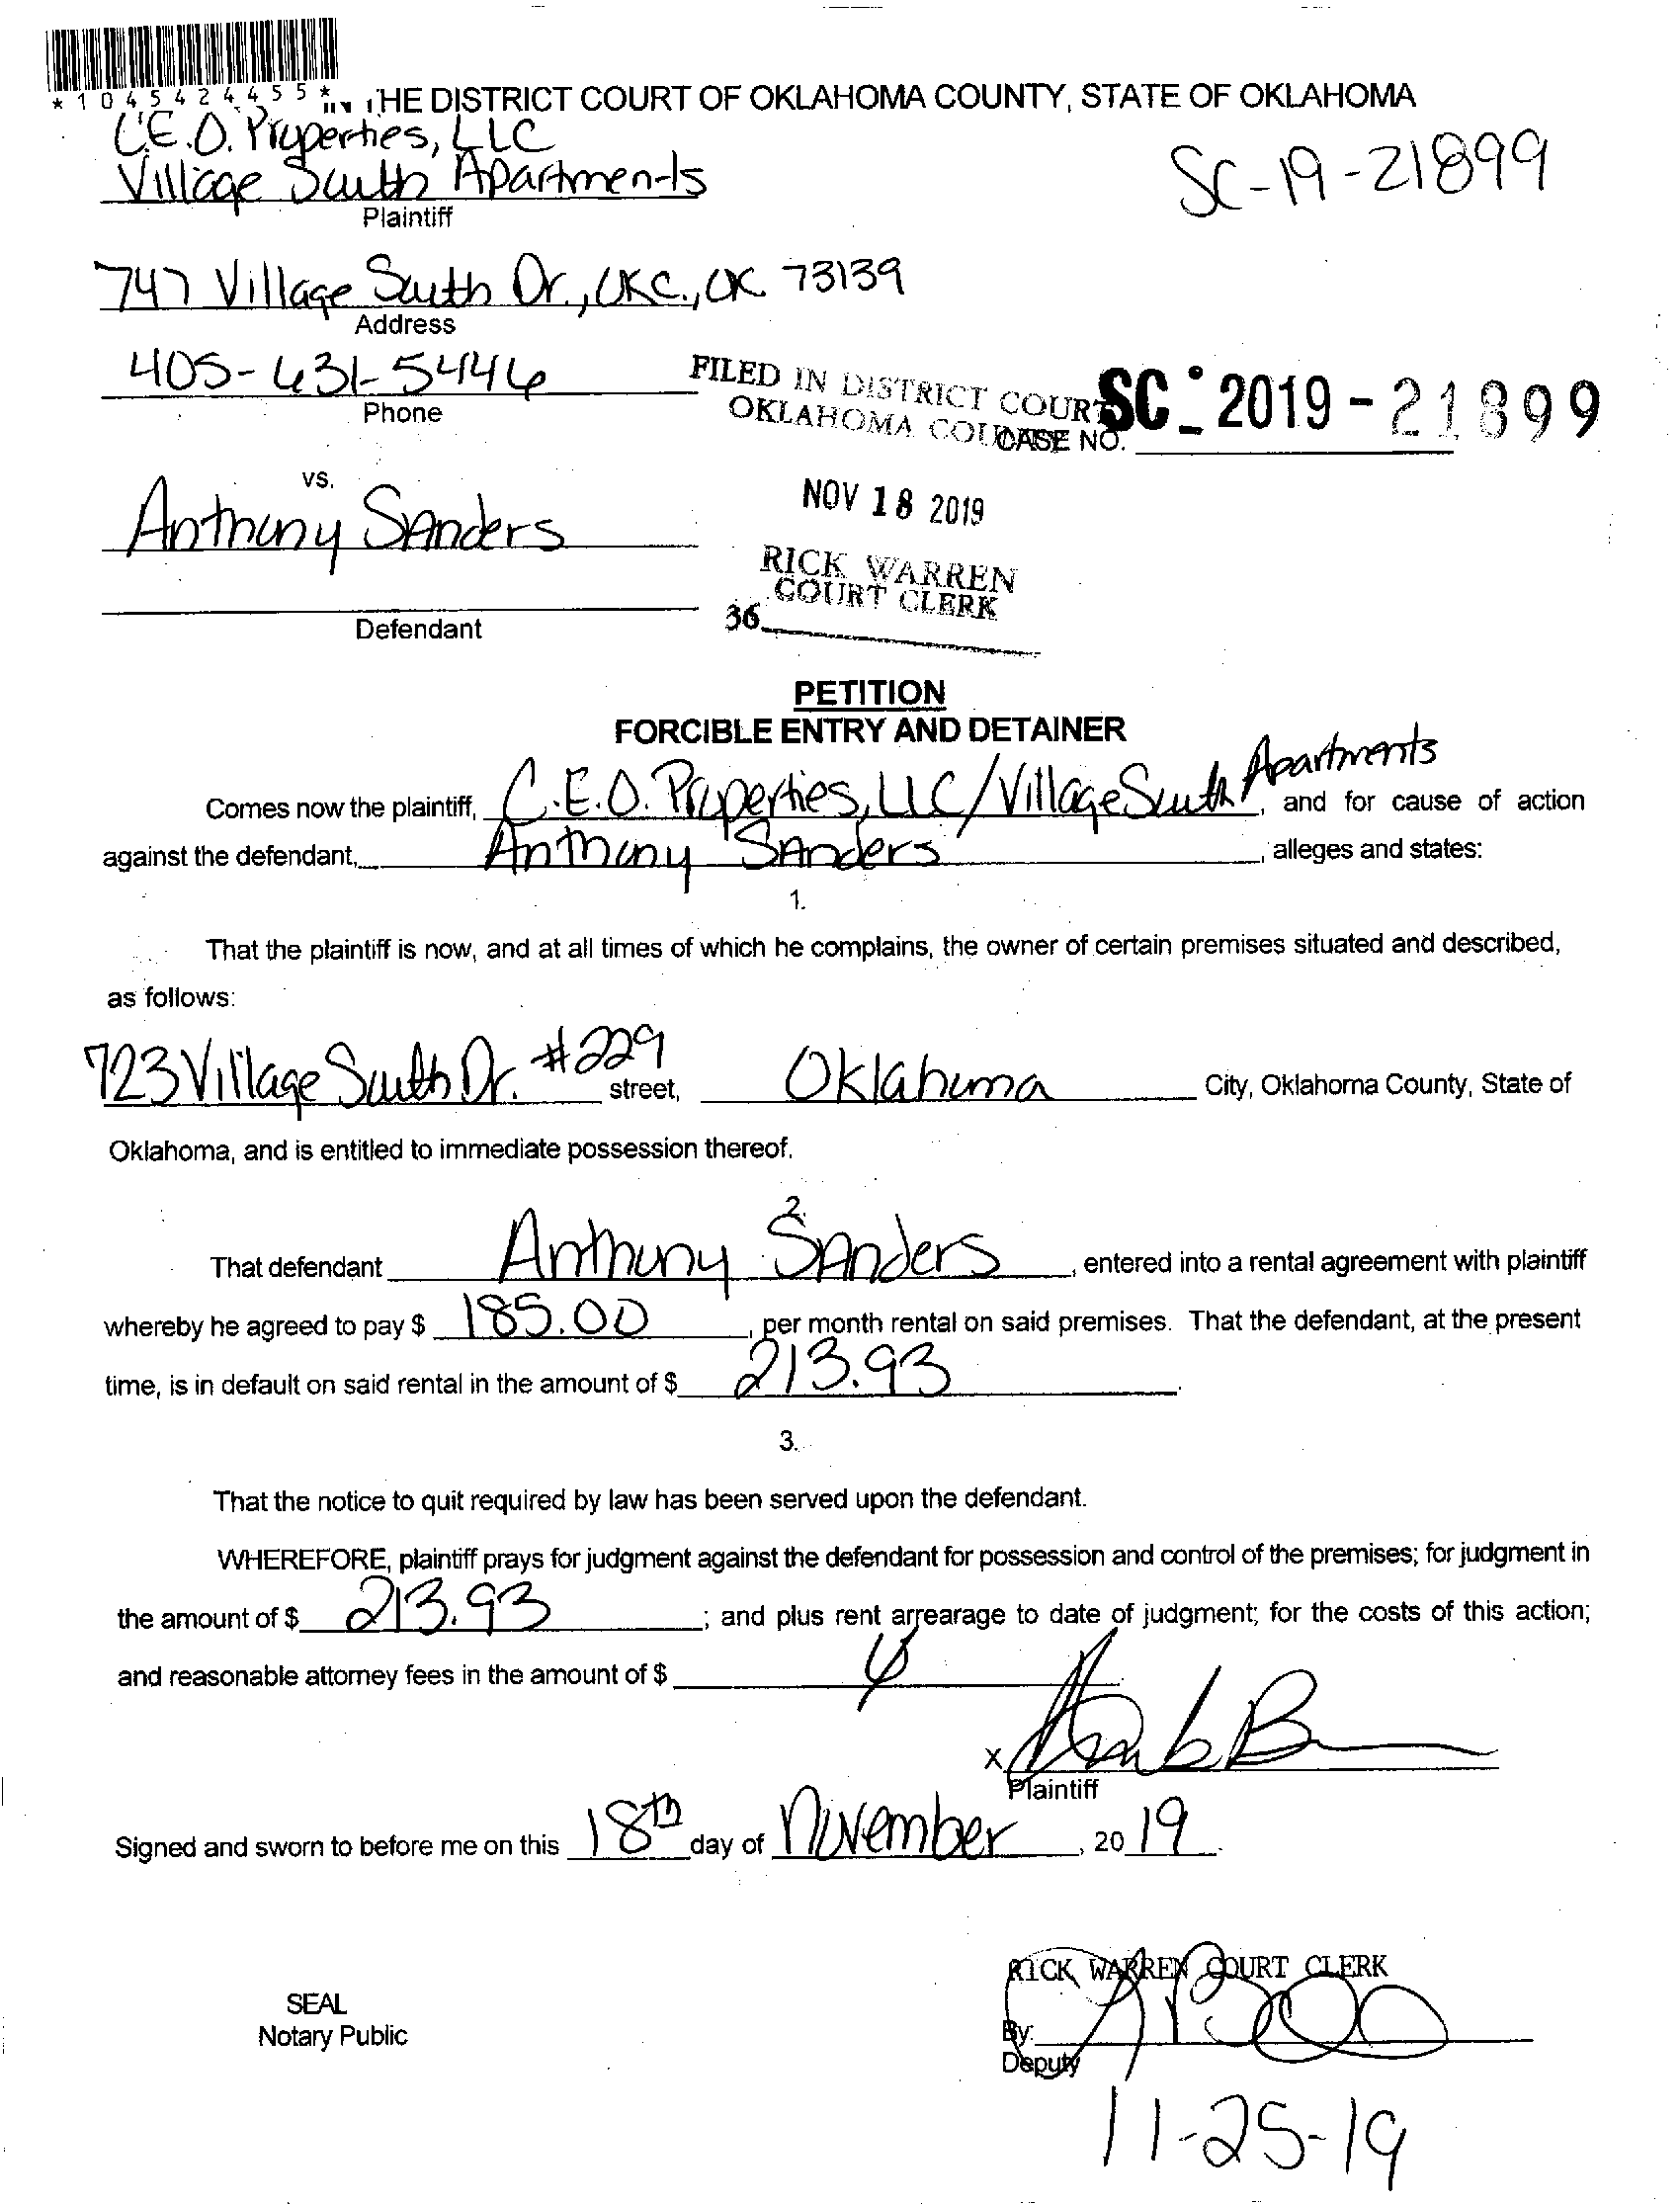 *1045424455*
IN THE DISTRICT COURT OF OKLAHOMA COUNTY, STATE OF OKLAHOMA
C.E.O. Properties, LLC
Village South Apartments
SC-19-21899
Plaintiff
747 Village South Dr., OKC., OK 73139
Address
405-631-5446
Phone
FILED IN DISTRICT COURT
OKLAHOMA COUNTY
CASE NO. SC-2019-21899
vs.
NOV 18 2019
Anthony SAnders
RICK WARREN
COURT CLERK
36
Defendant
PETITION
FORCIBLE ENTRY AND DETAINER
Comes now the plaintiff, C.E.O. Properties, LLC/Village South Apartments, and for cause of action
against the defendant, Anthony SAnders, alleges and states:
1.
That the plaintiff is now, and at all times of which he complains, the owner of certain premises situated and described,
as follows:
723 Village South Dr. #229 street, Oklahoma City, Oklahoma County, State of
Oklahoma, and is entitled to immediate possession thereof.
2.
That defendant Anthony SAnders, entered into a rental agreement with plaintiff
whereby he agreed to pay $ 185.00, per month rental on said premises. That the defendant, at the present
time, is in default on said rental in the amount of $ 213.93.
3.
That the notice to quit required by law has been served upon the defendant.
WHEREFORE, plaintiff prays for judgment against the defendant for possession and control of the premises; for judgment in
the amount of $ 213.93; and plus rent arrearage to date of judgment; for the costs of this action;
and reasonable attorney fees in the amount of $
x
Plaintiff
Signed and sworn to before me on this 18th day of November, 20 19.
RICK WARREN COURT CLERK
SEAL
Notary Public
By:
Deputy
11-25-19